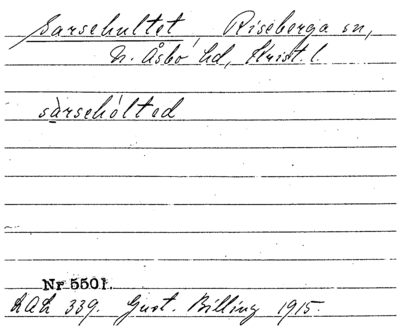 Sarsehultet, Riseberga sn,
N. Åsbo hd, Krist. l.
sàrsehólted
Nr 5501.
LAL 339. Gust. Billing 1915.